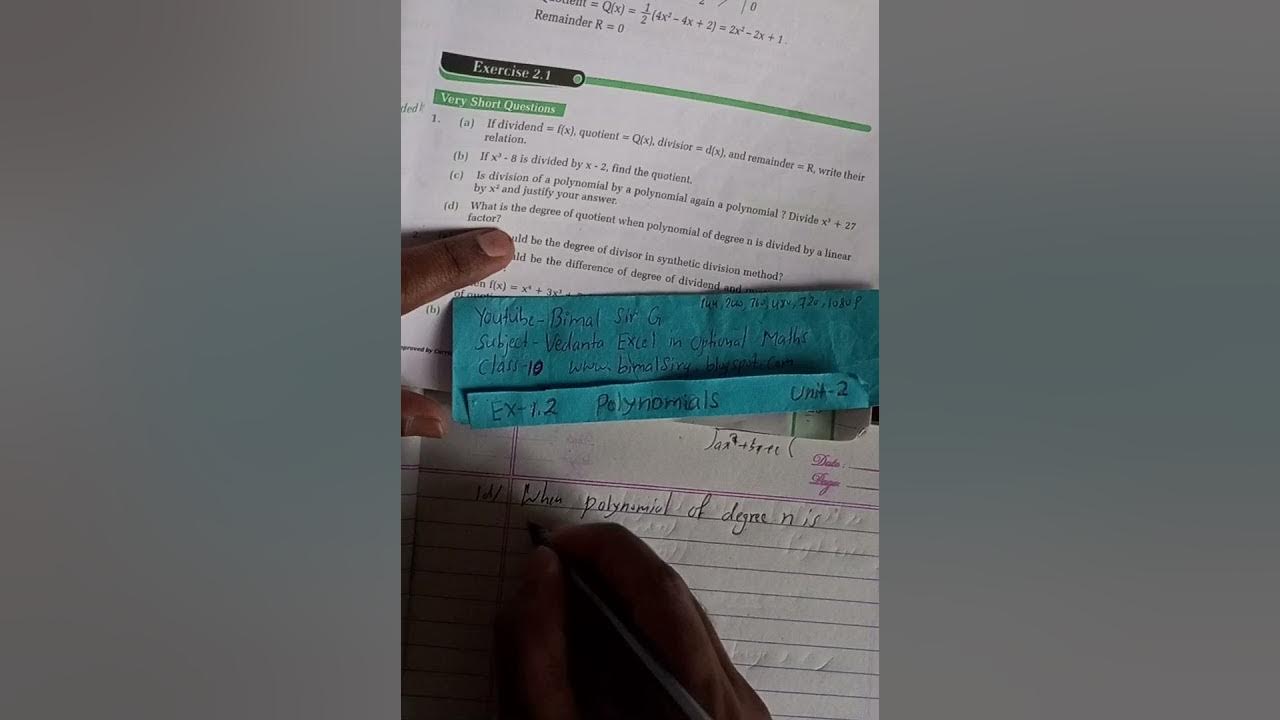 = Q(x) = 1/2 (4x² – 4x + 2) = 2x² – 2x + 1.
Remainder R = 0
Exercise 2.1
Very Short Questions
1. (a) If dividend = f(x), quotient = Q(x), divisior = d(x), and remainder = R, write their
relation.
(b) If x³ - 8 is divided by x - 2, find the quotient.
(c) Is division of a polynomial by a polynomial again a polynomial ? Divide x³ + 27
by x² and justify your answer.
(d) What is the degree of quotient when polynomial of degree n is divided by a linear
factor?
be the degree of divisor in synthetic division method?
be the difference of degree of dividend and
f(x) = x⁴ + 3x³
of
(b)
144, 240, 360, 480, 720, 1080p
Youtube - Bimal Sir G
Subject - Vedanta Excel in Optional Maths
Class-10 www.bimalsirg.blogspot.com
EX-1.2 Polynomials Unit-2
Date:
Page:
1d) When polynomial of degree n is